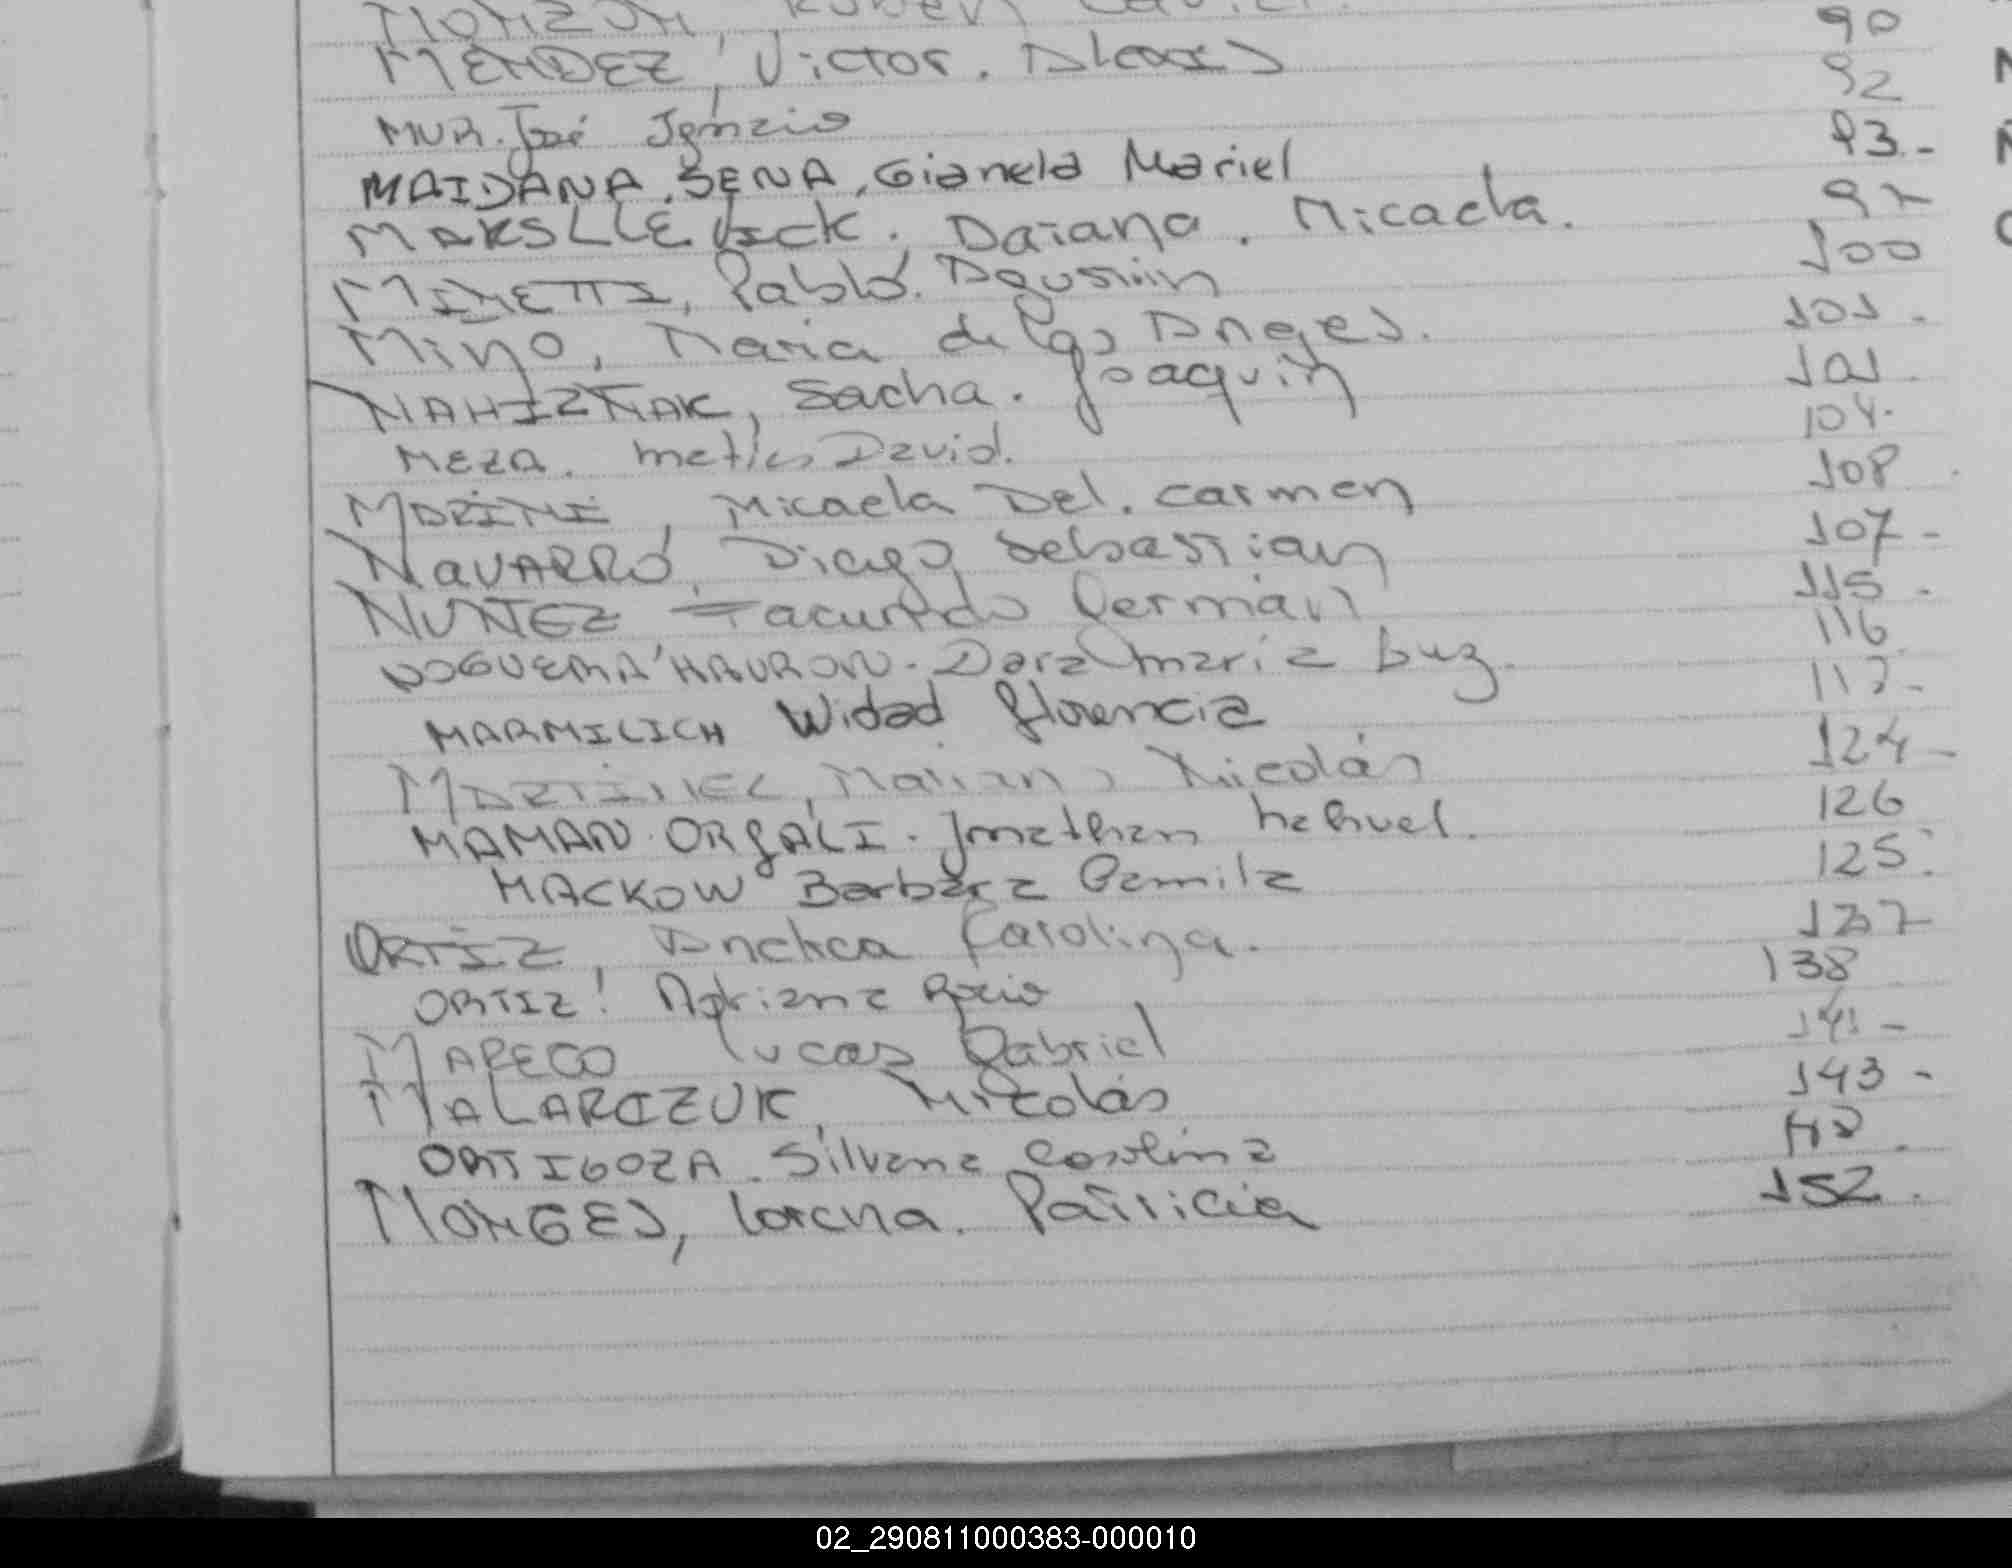 MONZON, Ruben Javier. 90
MENDEZ, Victor. Alexis 92
MUR. José Ignazio 93.-
MAIDANA, SENA, Gianela Mariel 97
MARSLLEVICK. Daiana. Micaela. 100
MINETTI, Pablo. Agustin 101.
Miño, Maria de los Angeles. 101.
NAHIZÑAK, Sacha. Joaquin 104.
MEZA. Matias David. 108
MARINI, Micaela Del. carmen 107-
NaVARRO, Diego Sebastian 115.
NUÑEZ Facundo German 116
NOGUERA HAURON. Dara maria luz. 117-
MARMILICH Widad florencia 124-
MARTINEZ, Mariano Nicolás 126
MAMAN. ORGALI. Jonathan nahuel. 125.
MACKOW Barbara Camila 137
ORTIZ, Anchea Carolina. 138
ORTIZ! Adriana Rocio 141-
MARECO Lucas Gabriel 143-
MALARCZUK, Nicolás
ORTIGOZA. Silvana Carolina 152.
MONGES, Lorena. Patricia
02_290811000383-000010